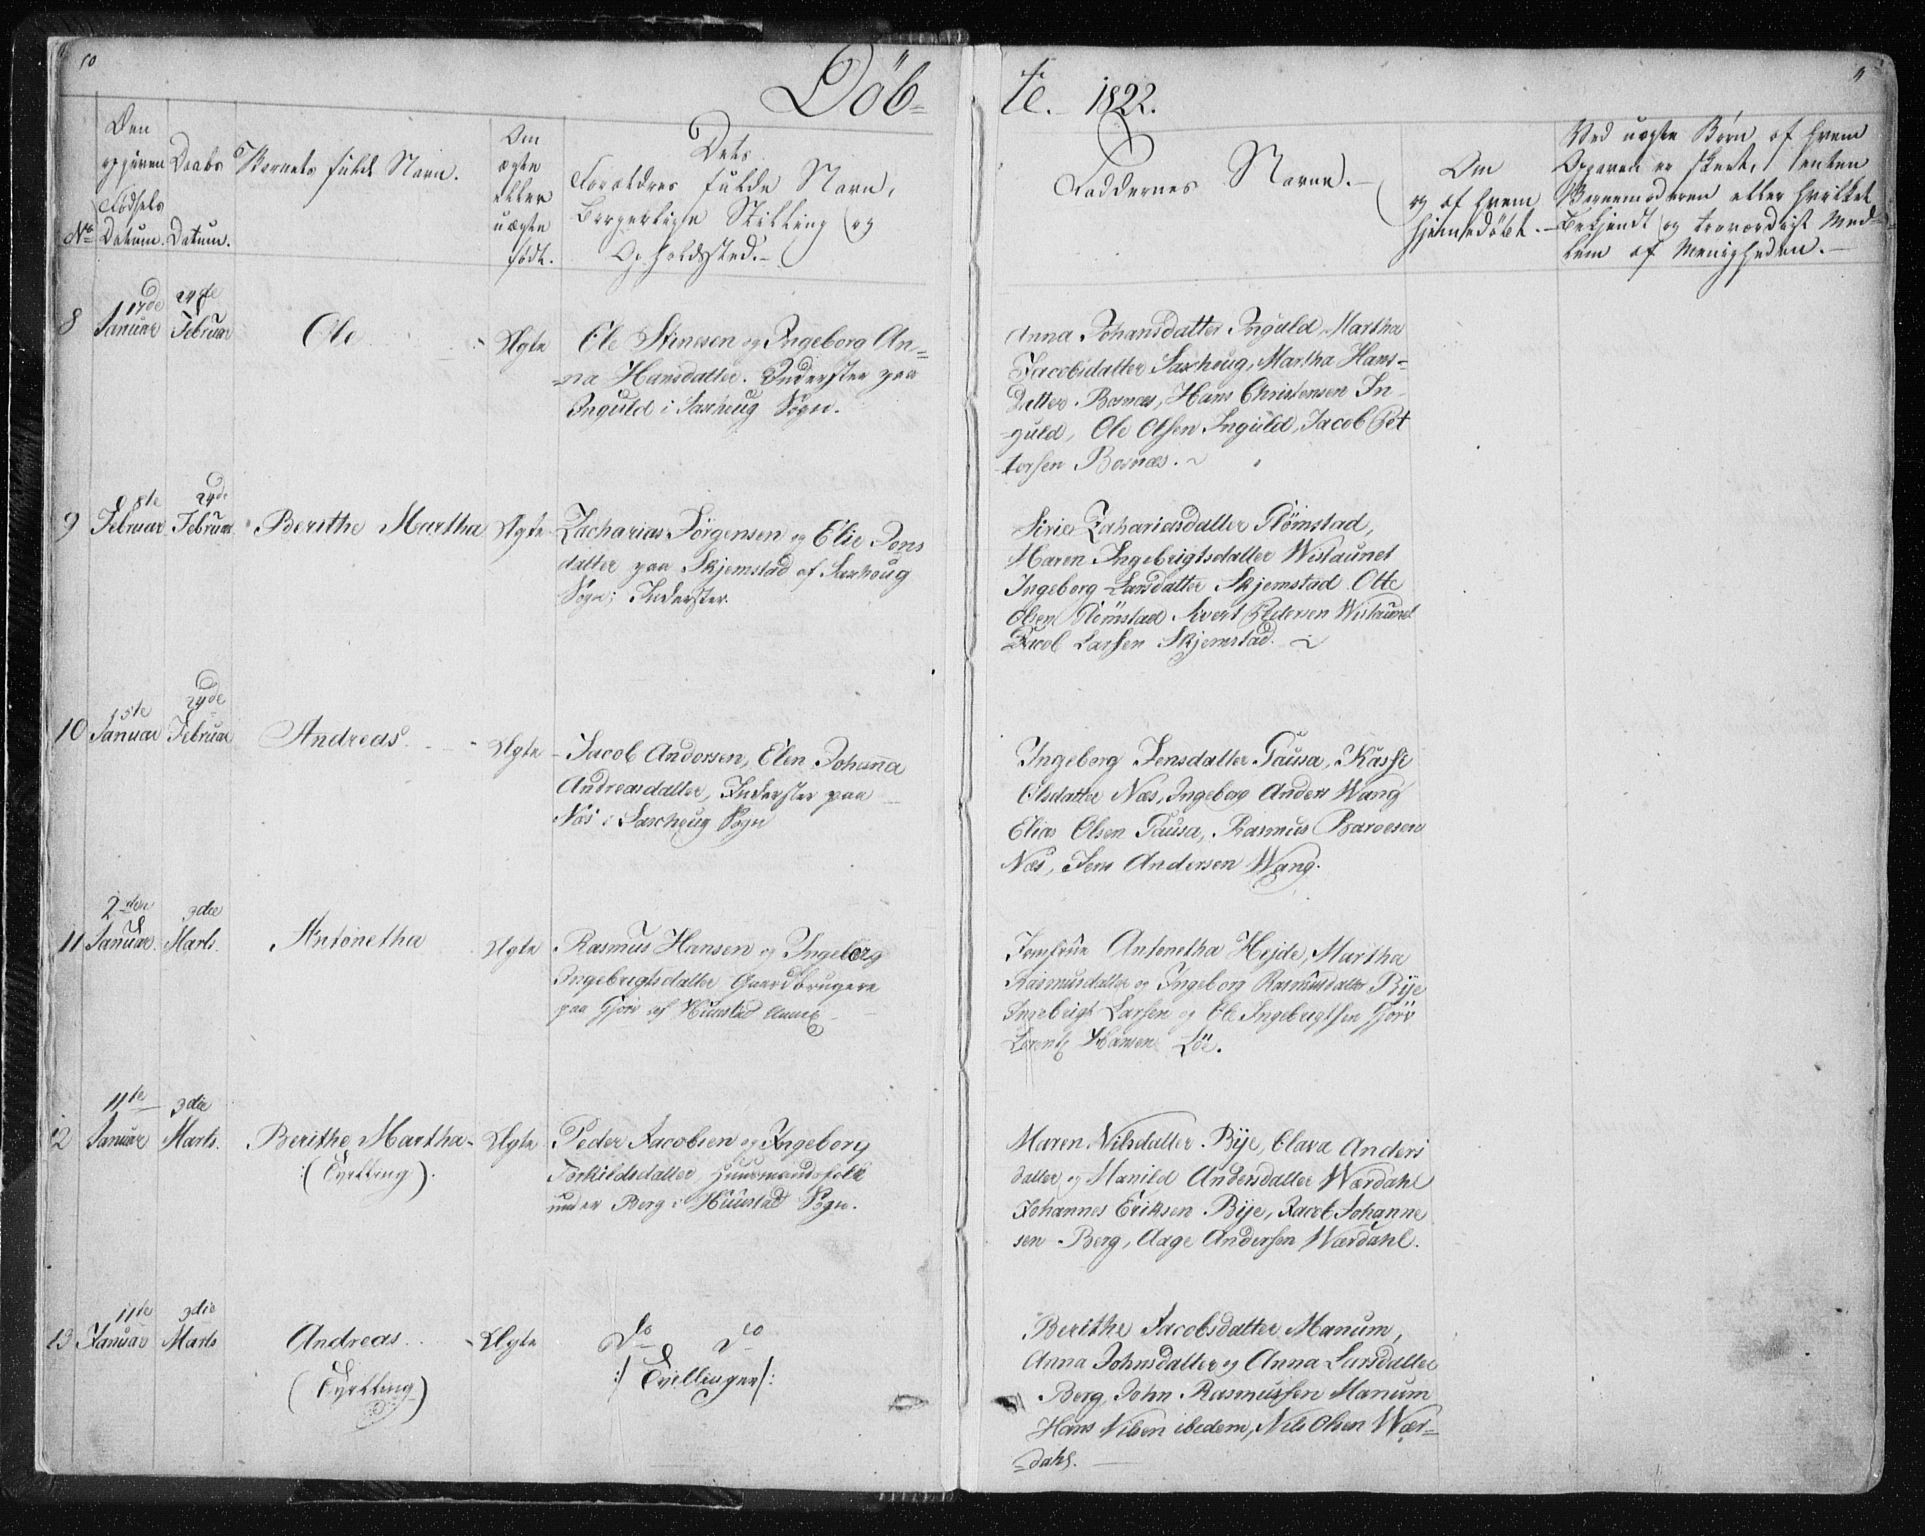 10
11
Döb-
te. 1822.
No
Den opgivne Fødsels Datum.
Daabs Datum.
Barnets fulde Navn.
Om ægte eller uægte født.
Dets Forældres fulde Navn, Borgerlige Stilling og Opholdssted.
Faddernes Navne.
Om og af hvem hjemmedöbt.
Ved uægte Børn af hvem Opgaven er skeet, enten Barnemoderen eller hvilket bekjendt og troværdigt Medlem af Menigheden.
8
17de Januar
24de Februar
Ole
Ægte
Ole Stinesen og Ingeborg An-
-na Hansdatter. Inderster paa
Inguld i Saxhoug Sogn.
Anna Johansdatter Inguld, Martha
Jacobsdatter Saxhoug, Martha Hans-
datter Bosnæs, Hans Christensen In-
-guld, Ole Olsen Inguld, Jacob Pet
tersen Bosnæs.
9
8te Februar
24de Februar
Berithe Martha
Ægte
Zacharias Jörgensen og Elie Jons
datter paa Skjemstad af Saxhoug
Sogn; Inderster.
Sirie Zachariasdatter Römstad,
Haren Ingebrigtsdatter Wistaunet
Ingeborg Larsdatter Skjemstad Otte
Olsen Römstad Sivert Pedersen Wistaunet
Jacob Larsen Skjemstad.
10
15te Januar
24de Februar
Andreas
Ægte
Jacob Andersen, Elen Johanna
Andreasdatter, Inderster paa
Næs i Saxhoug Sogn
Ingeborg Jensdatter Tausa, Kasse
Olsdatter Næs, Ingeborg Anders Wang
Elias Olsen Tausa, Rasmus Baroesen
Næs, Jens Andersen Wang.
11
2den Januar.
3die Marts.
Antonetha
Ægte
Rasmus Hansen og Ingeborg
Ingebrigtsdatter Gaardbrugere
paa Gjörv af Huustad Annex
Jomfrue Antonetha Hejde, Martha
Rasmusdatter og Ingeborg Rasmusdatter Bye
Ingebrigt Larsen og Ole Ingebrigtsen Gjörv
Lorentz Hansen Löe.
12
11te Januar
3die Marts.
Berithe Martha
:(Tvilling):
Ægte
Peder Jacobsen og Ingeborg
Torkildsdatter Huusmandsfolk
under Berg i Huustad Sogn.
Maren Nilsdatter Bye, Clara Anders
datter og Marild Andersdatter Wærdahl
Johannes Eriksen Bye, Jacob Johanne
sen Berg, Aage Andersen Wærdahl.
13
11te Januar
3die Marts
Andreas
(Tvilling)
Ægte
Do Do
:/ Tvillinger /:
Berithe Jacobsdatter Manum,
Anna Johnsdatter og Anna Larsdatter
Berg, John Rasmussen Manum
Hans Nilsen ibidem, Nils Olsen Wær-
-dahl.